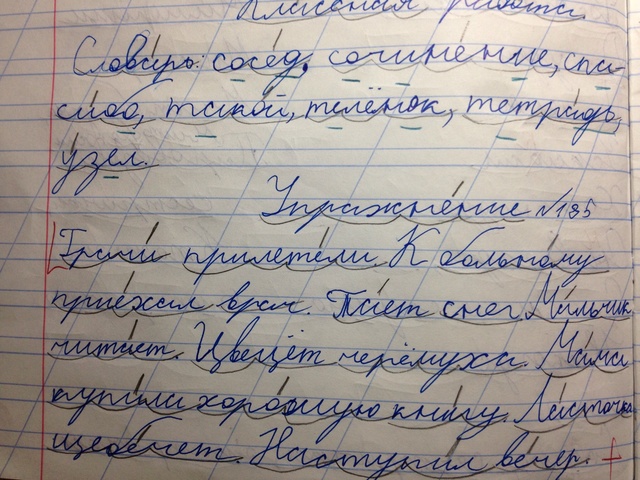 Классная работа.
Словарь: сосед, сочинение, спа-
сибо, такой, телёнок, тетрадь,
узел.
Упражнение №195
Грачи прилетели. К больному
приехал врач. Тает снег. Мальчик
читает. Цветёт черёмуха. Мама
купили хорошую книгу. Ласточка
щебечет. Наступил вечер.